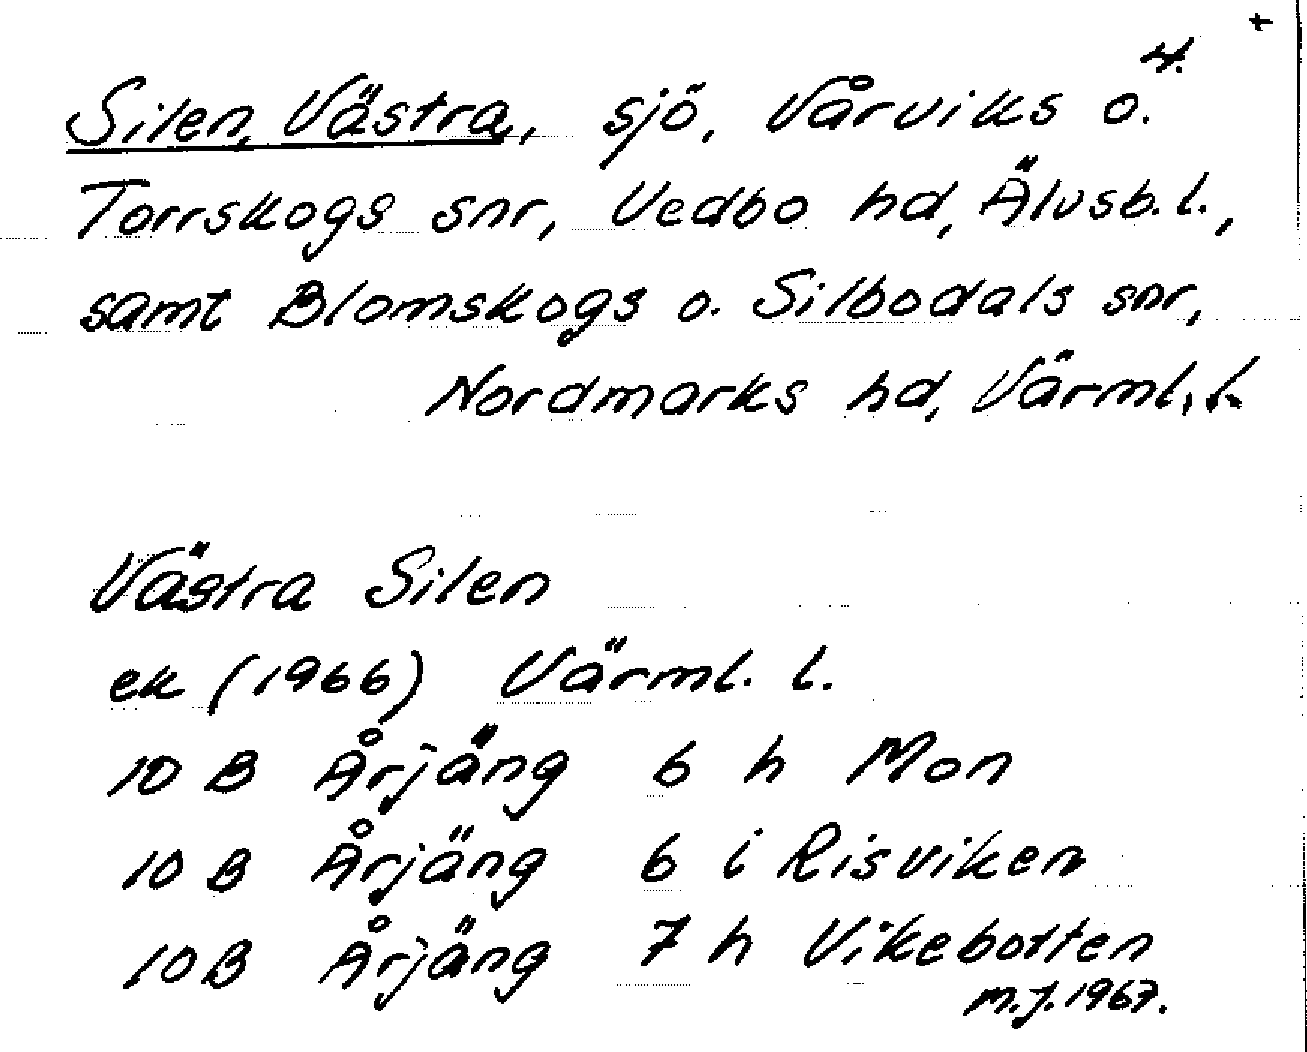 4.
Silen, Västra, sjö, Vårviks o.
Torrskogs snr, Vedbo hd, Älvsb. l.,
samt Blomskogs o. Silbodals snr,
Nordmarks hd, Värml. l.
Västra Silen
ek (1966) Värml. l.
10 B Årjäng 6 h Mon
10 B Årjäng 6 i Risviken
10 B Årjäng 7 h Vikebotten
M.J. 1967.